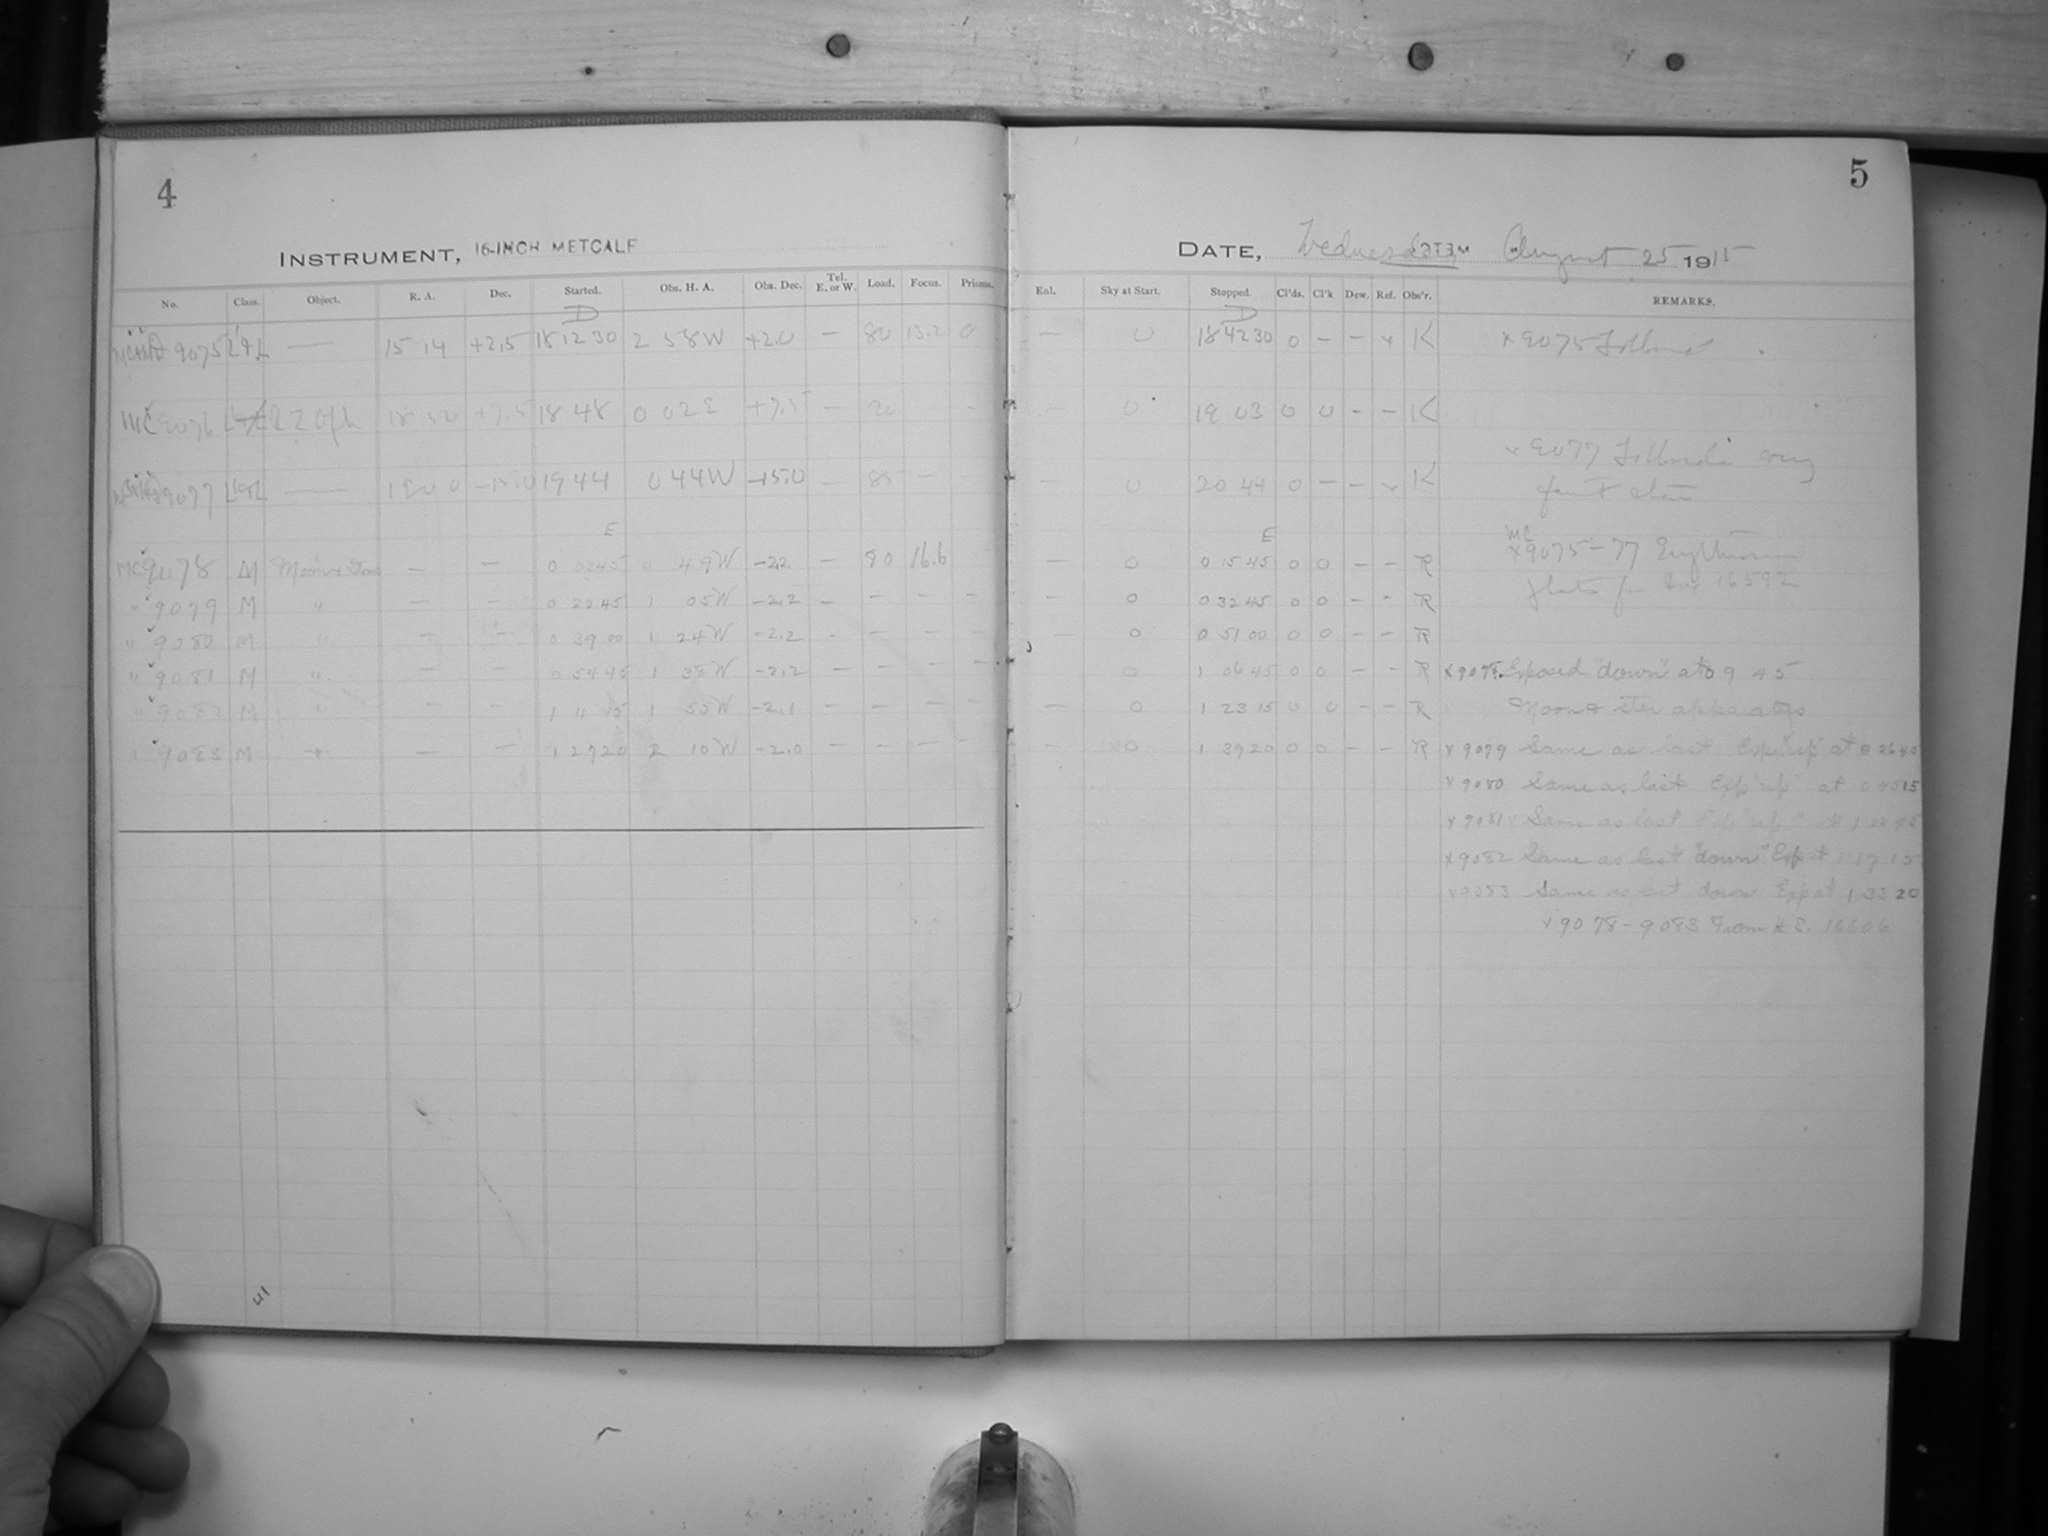 4
INSTRUMENT, 16-INCH METCALF
No. Class. Object. R. A. Dec. Started. Obs. H. A. Obs. Dec. Tel. E. or W. Load. Focus. Prisms.
D
9075 — 15 14 +2.5 18 12 30 2 58W +2.0 — 80 13.2 0
MC 9076 RZ Oph +7.5 18 48 0 02E +7.5 —
9077 — 19 0 0 -15.0 19 44 0 44W -15.0 85 —
E
MC 9078 M Moon & Stars — — 0 03 45 0 49W -2.2 — 80 16.6
" 9079 M " — — 0 20 45 1 05W -2.2 — — — —
" 9080 M " — — 0 39 00 1 24W -2.2 — — — —
" 9081 M " — — 0 54 45 1 38W -2.2 — — — —
" 9082 M " — — 1 11 15 1 55W -2.1 — — — —
" 9083 M " — — 1 27 20 2 10W -2.0 — — — —
5
DATE, Wednesday August 25 1915
Enl. Sky at Start. Stopped. Cl'ds. Cl'k Dew. Ref. Obs'r. REMARKS.
D
— 0 18 42 30 0 — — x K x 9075
— 0 19 03 0 0 — — K
x 9077 very
— 0 20 44 0 — — K faint star
E
MC
x 9075-77
— 0 0 15 45 0 0 — — R 16592
— 0 0 32 45 0 0 — — R
— 0 0 51 00 0 0 — — R
0 1 06 45 0 0 — — R x 9078. Exposed "down" at 0 9 45
— 0 1 23 15 0 0 — — R Moon & star apparatus
— 0 1 39 20 0 0 — — R x 9079 Same as last Exp "up" at 0 26 45
x 9080 Same as last Exp "up" at 0 45 15
x 9081 Same as last Exp "up" at
x 9082 Same as last "down" Exp at 1 17 15
x 9083 Same as last down Exp at 1 33 20
x 9078-9083 From H.S. 16606